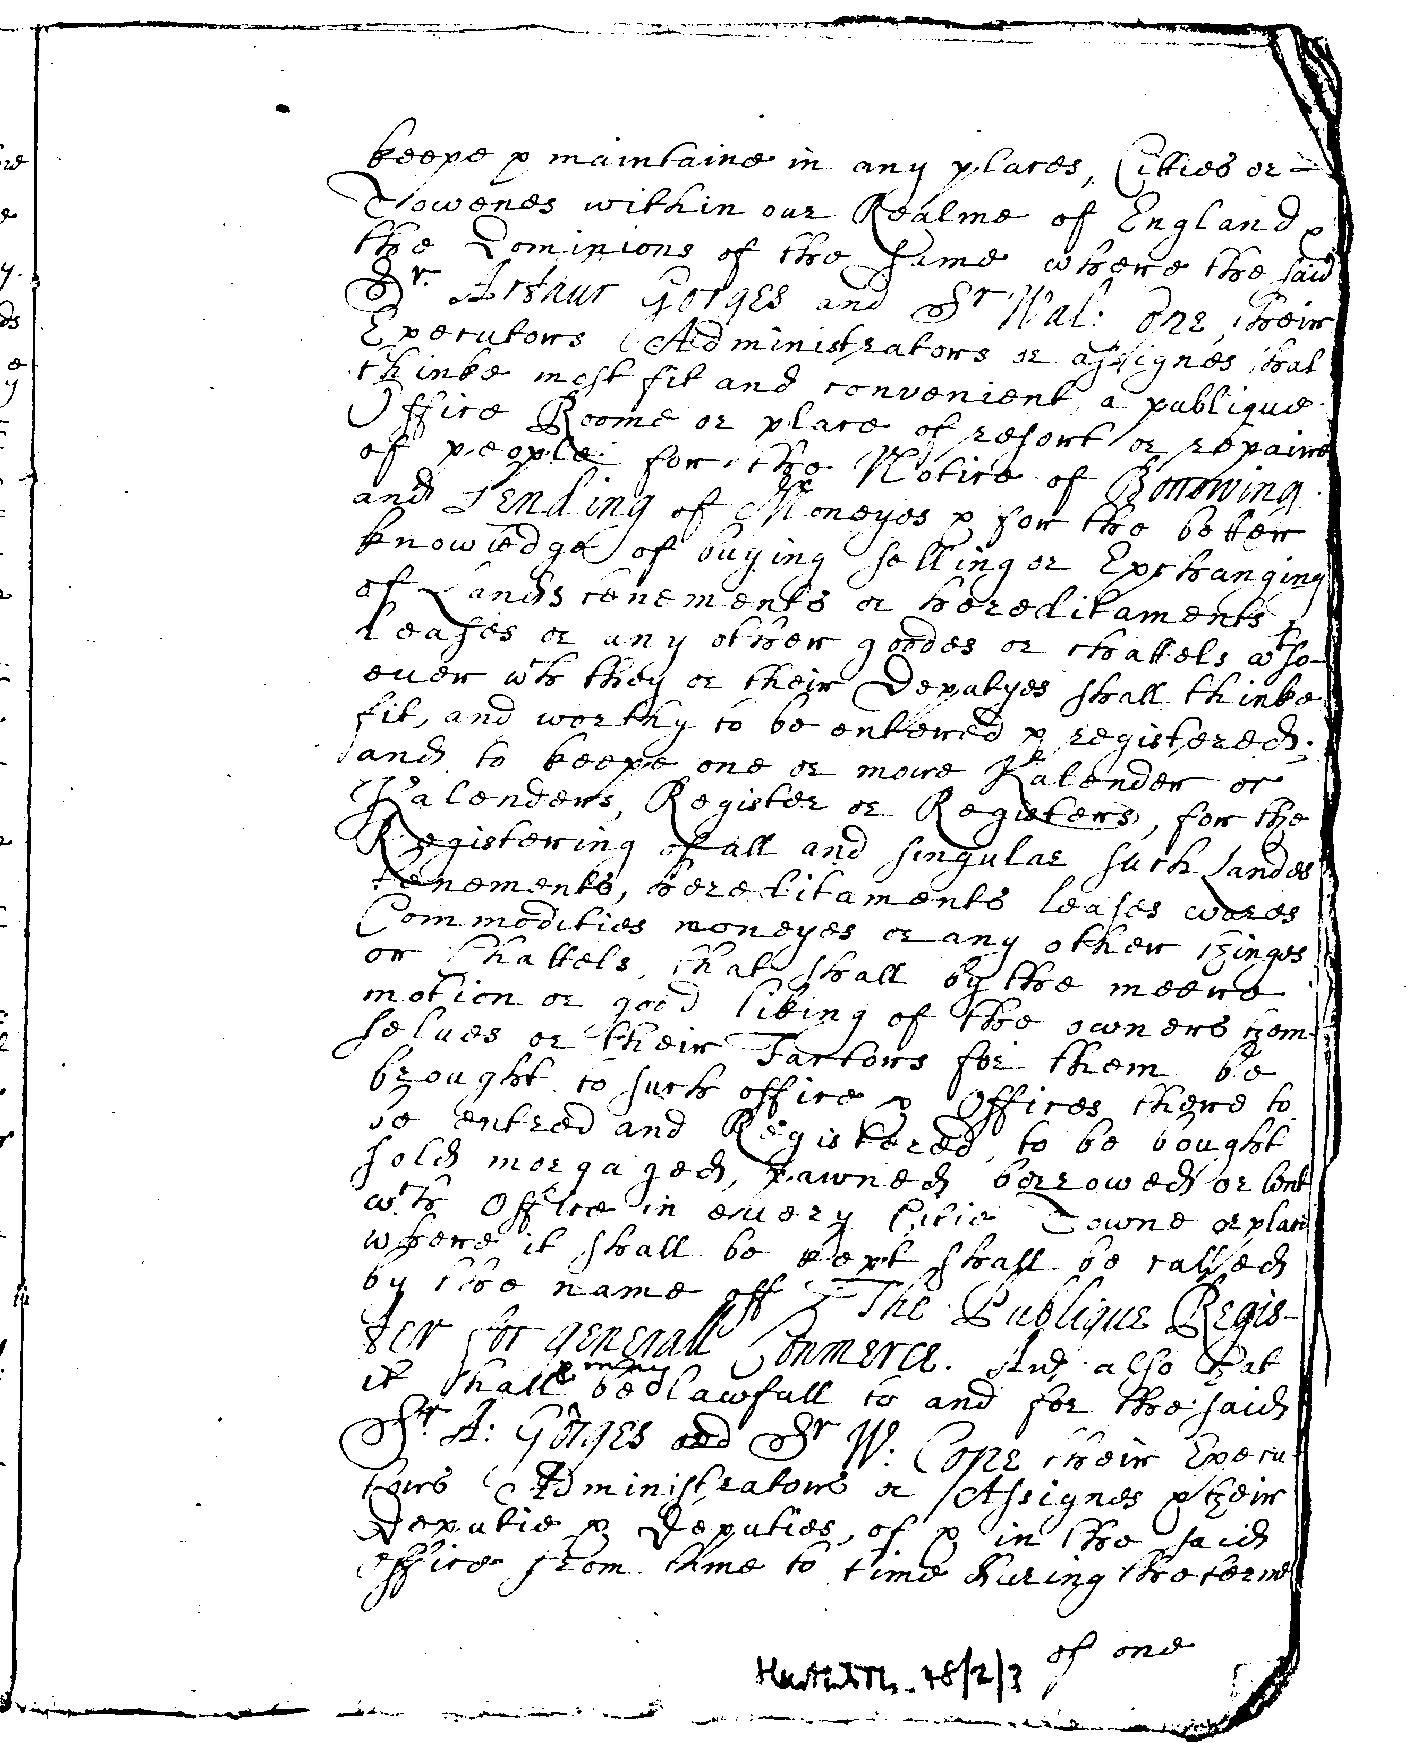 keepe & maintaine in any places, Citties or
Townes within our Realme of England &
the Dominions of the same where the said
Sr. Arthur Gorges and Sr Wal: Cope, their
Executors Administrators or assignes shal
thinke most fit and convenient, a publique
Office Roome or place of resort or repaire
of people for the Notice of Borrowing
and Lending of Moneyes & for the better
knowledge of buying selling or Exchanging
of Lands tenements or hereditaments
leases or any other goodes or chattels wtso-
ever wch they or their Deputyes shall thinke
fit, and worthy to be entered & registered.
and to keepe one or more Kalender or
Kalenders, Register or Registers, for the
Registering of all and singular such Landes
tenements, hereditaments leases wares
Commodities moneyes or any other thinges
or Chattels, that shall by the meere
motion or good liking of the owners them-
selves or their Factors for them be
brought to such office & Offices there to
be entred and Registered, to be bought
sold morgaged, pawned borrowed or lent
wch Office in every Citie Towne or place
where it shall be kept shall be called
by the name off The Publique Regis-
ter for generall Commerce. And also that
it shall be lawfull to and for the said
Sr A: Gorges and Sr W: Cope their Execu-
tors Administrators or Assignes & their
Deputie & Deputies, of & in the said
office from time to time during the terme
of one
48/2/3